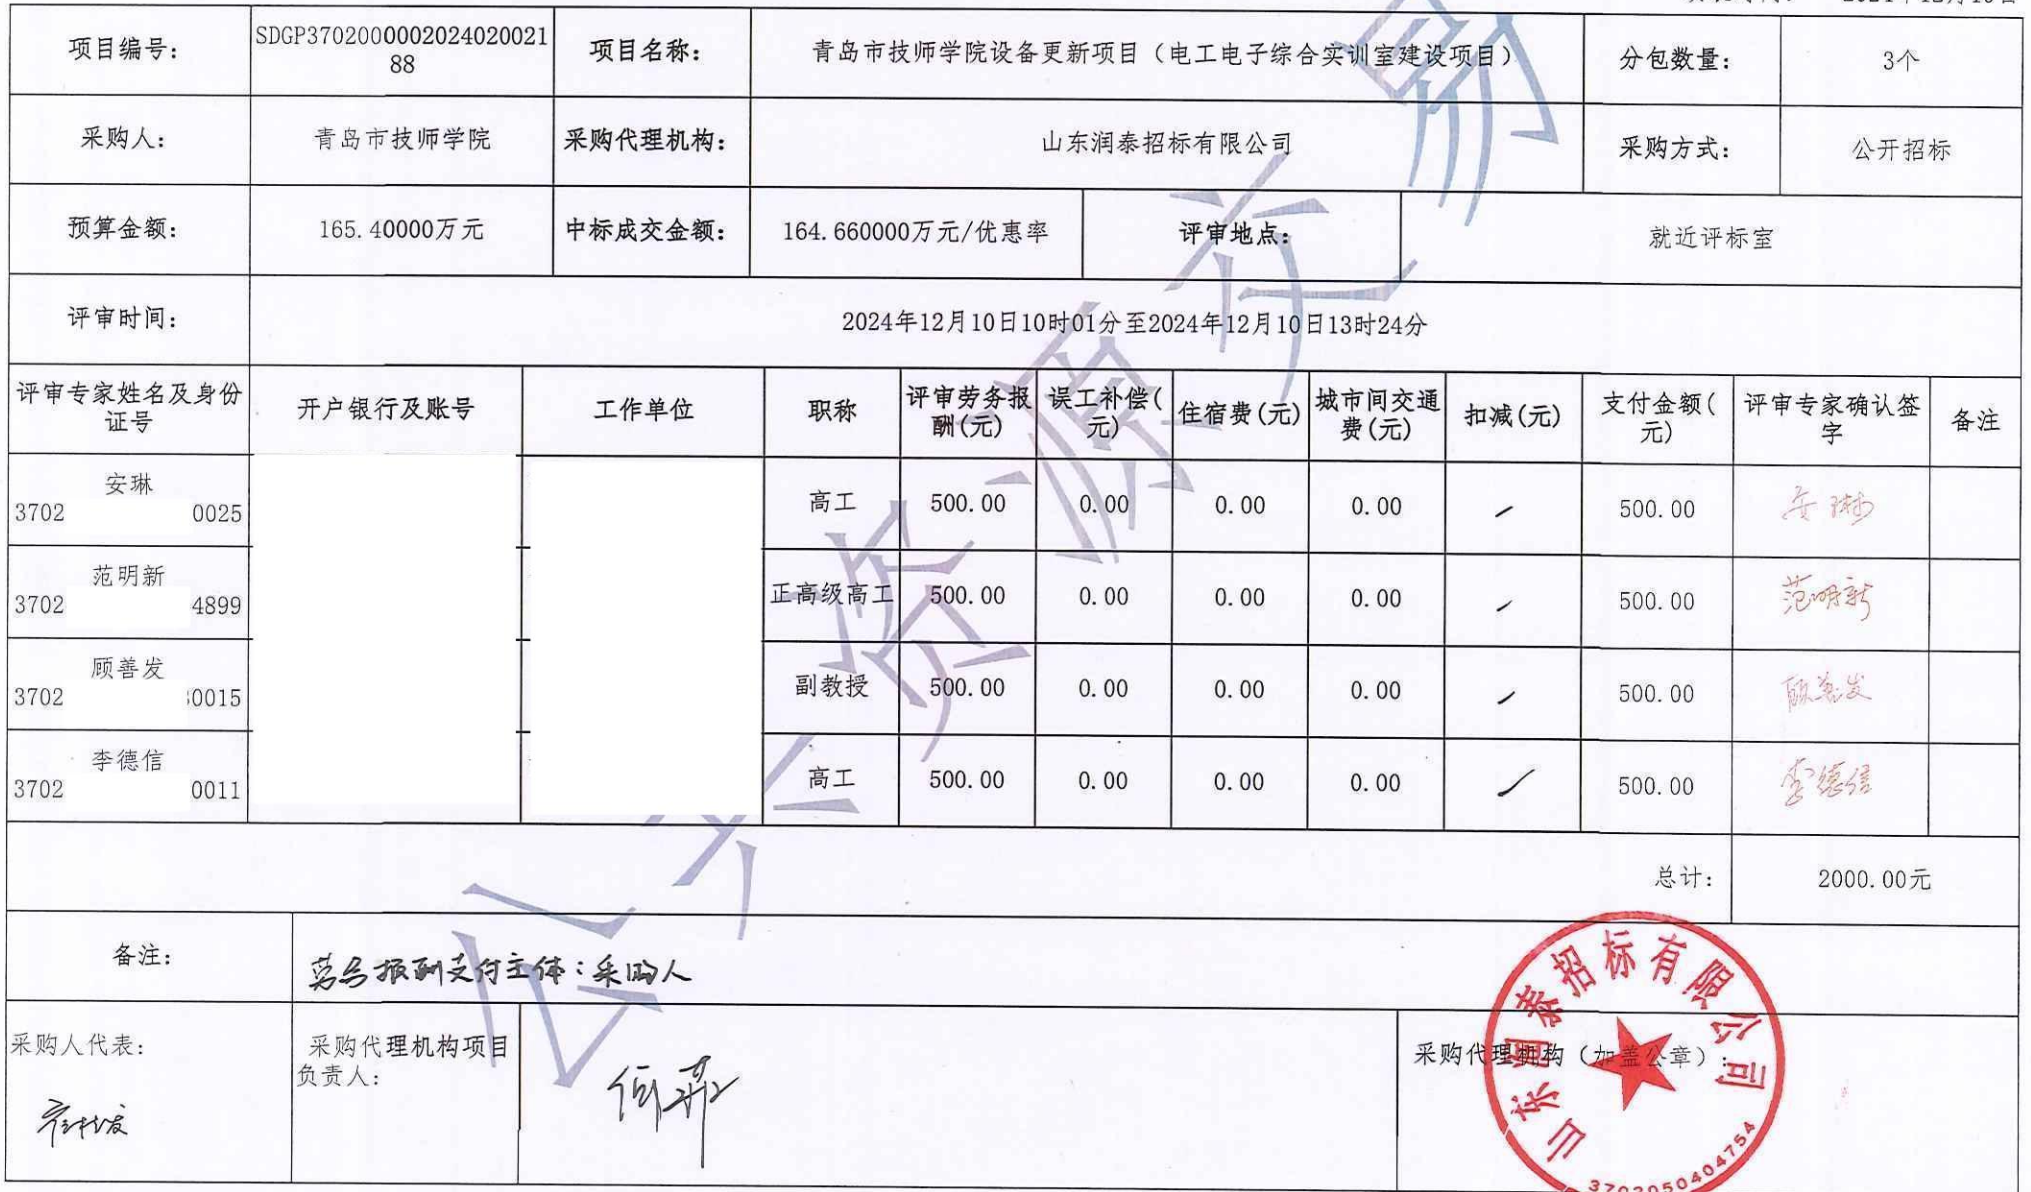 项目编号： SDGP3702000002024020021 项目名称： 青岛市技师学院设备更新项目（电工电子综合实训室建设项目） 分包数量： 3个
88
采购人： 青岛市技师学院 采购代理机构： 山东润泰招标有限公司 采购方式： 公开招标
预算金额： 165.40000万元 中标成交金额： 164.660000万元/优惠率 评审地点： 就近评标室
评审时间： 2024年12月10日10时01分至2024年12月10日13时24分
评审专家姓名及身份 开户银行及账号 工作单位 职称 评审劳务报 误工补偿( 住宿费(元) 城市间交通 扣减(元) 支付金额( 评审专家确认签 备注
证号 酬(元) 元) 费(元) 元) 字
安琳 高工 500.00 0.00 0.00 0.00 500.00 安琳
3702 0025
范明新 正高级高工 500.00 0.00 0.00 0.00 500.00 范明新
3702 4899
顾善发 副教授 500.00 0.00 0.00 0.00 500.00 顾善发
3702 0015
李德信 高工 500.00 0.00 0.00 0.00 500.00 李德信
3702 0011
总计： 2000.00元
备注： 劳务报酬支付主体：采购人
采购人代表： 采购代理机构项目 采购代理机构（加盖公章）：
负责人：
山东润泰招标有限公司
3702050404754
公共资源交易